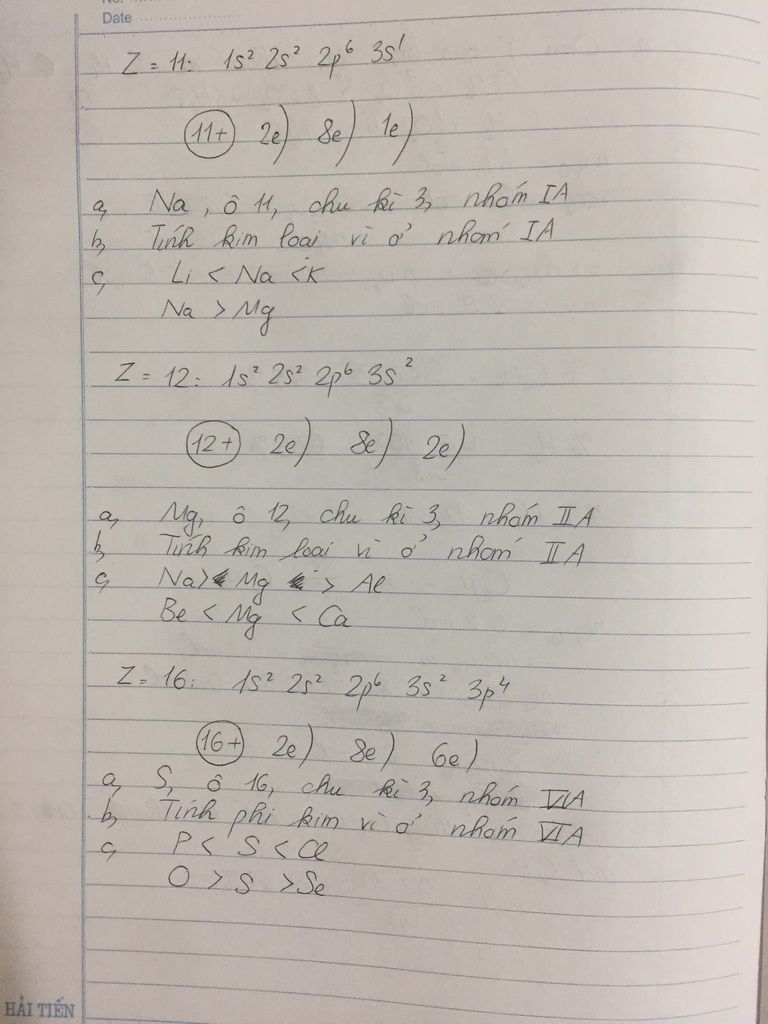 No:
Date
Z = 11: 1s² 2s² 2p⁶ 3s¹
11+ 2e) 8e) 1e)
a, Na, ô 11, chu kì 3, nhóm IA
b, Tính kim loại vì ở nhóm IA
c, Li < Na < K
Na > Mg
Z = 12: 1s² 2s² 2p⁶ 3s²
12+ 2e) 8e) 2e)
a, Mg, ô 12, chu kì 3, nhóm IIA
b, Tính kim loại vì ở nhóm IIA
c, Na > Mg > Al
Be < Mg < Ca
Z = 16: 1s² 2s² 2p⁶ 3s² 3p⁴
16+ 2e) 8e) 6e)
a, S, ô 16, chu kì 3, nhóm VIA
b, Tính phi kim vì ở nhóm VIA
c, P < S < Cl
O > S > Se
HẢI TIẾN